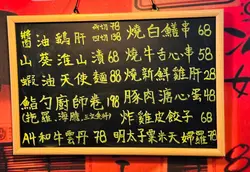 醬油鵝肝 78 燒白鱔串 68
山葵淮山漬 68 燒牛舌心串 58
蝦油天使麵 88 燒新鮮雞肝 28
鮨勺廚師卷 198 豚肉溏心蛋 48
(拖羅、海膽、三文魚籽) 炸雞皮餃子 68
A4和牛雲丹 78 明太子粟米天婦羅 78